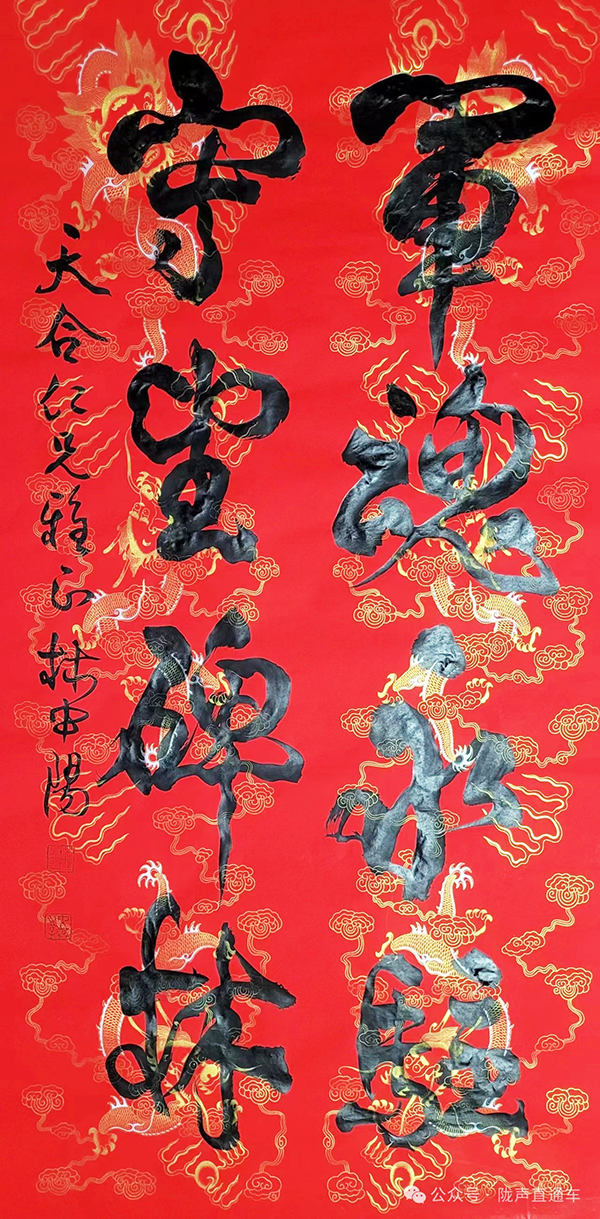 軍魂永駐
守望碑林
天合仁兄雅正 林中陽
公众号 · 陇声直通车